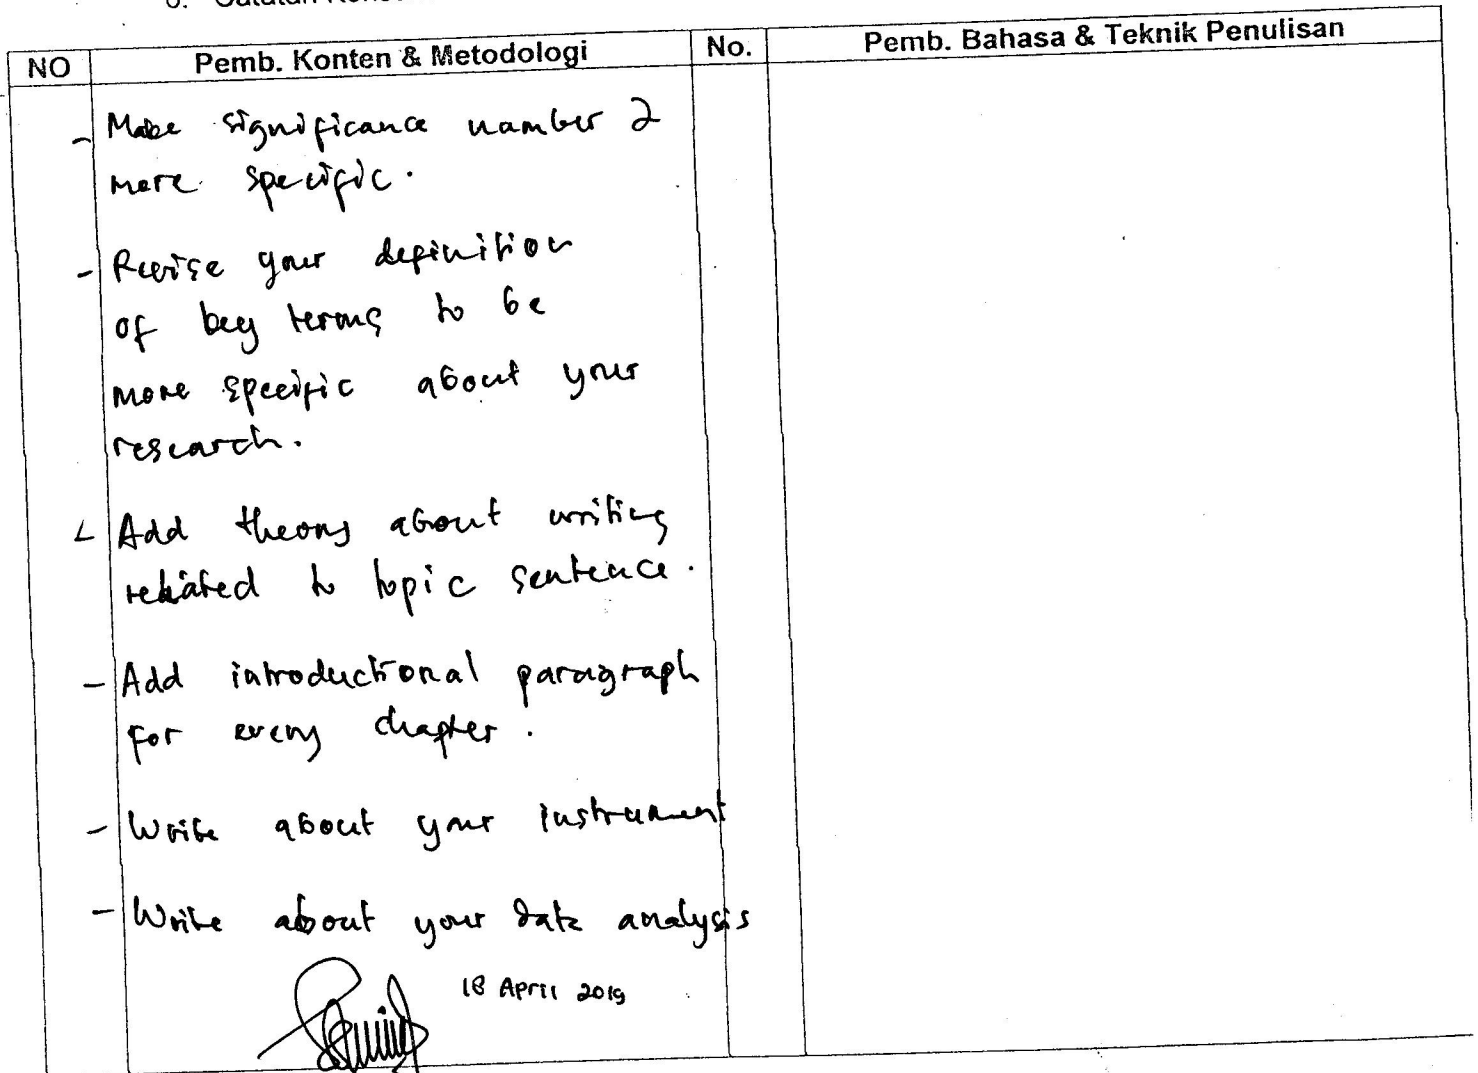 NO Pemb. Konten & Metodologi No. Pemb. Bahasa & Teknik Penulisan
- Make significance number 2
more specific.
- Revise your definition
of key terms to be
more specific about your
research.
- Add theory about writing
related to topic sentence.
- Add introductional paragraph
for every chapter.
- Write about your instrument
- Write about your data analysis
18 April 2019